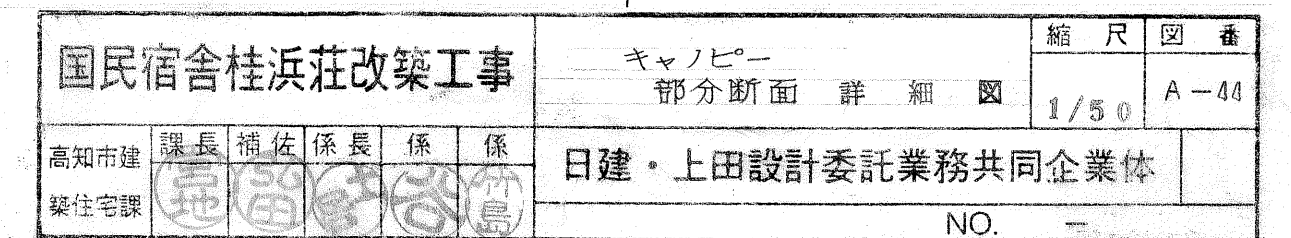 国民宿舎桂浜荘改築工事
キャノピー
部分断面 詳細図
縮尺
1/50
図番
A-44
高知市建
築住宅課
課長 補佐 係長 係 係
宮地 弘田 谷 竹島
日建・上田設計委託業務共同企業体
NO. −